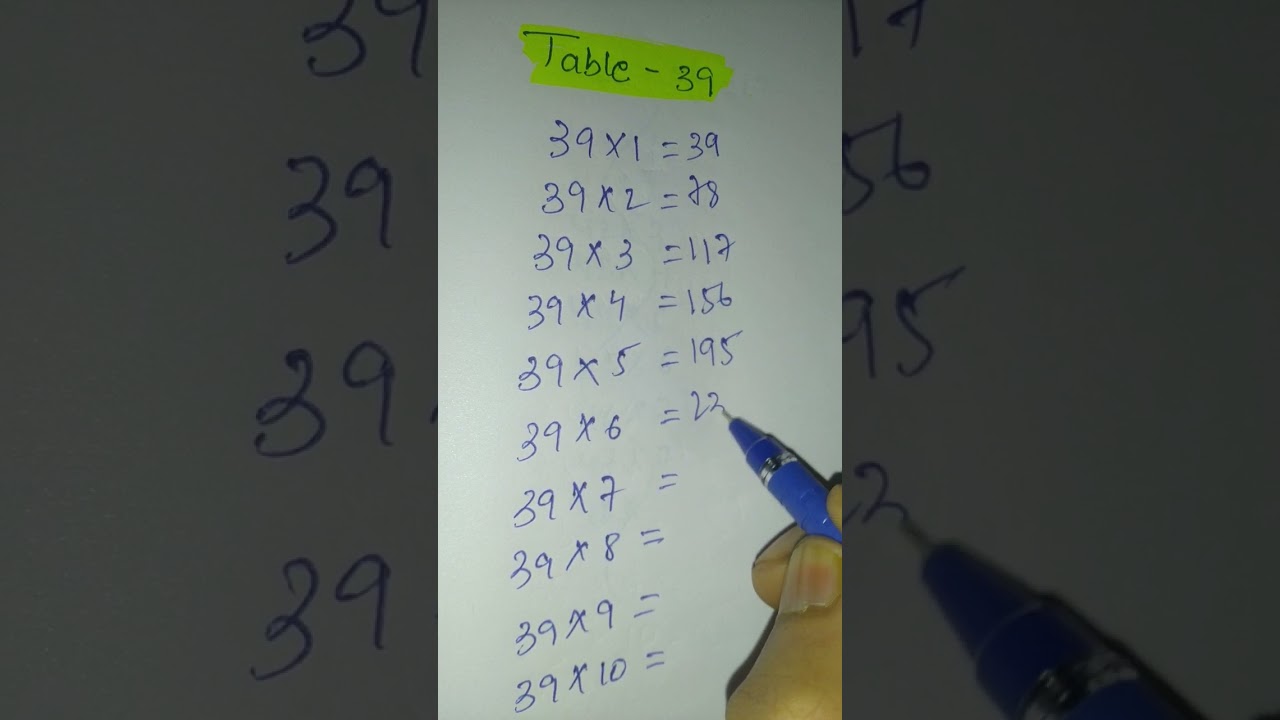 Table - 39
39 × 1 = 39
39 × 2 = 78
39 × 3 = 117
39 × 4 = 156
39 × 5 = 195
39 × 6 = 23
39 × 7 =
39 × 8 =
39 × 9 =
39 × 10 =